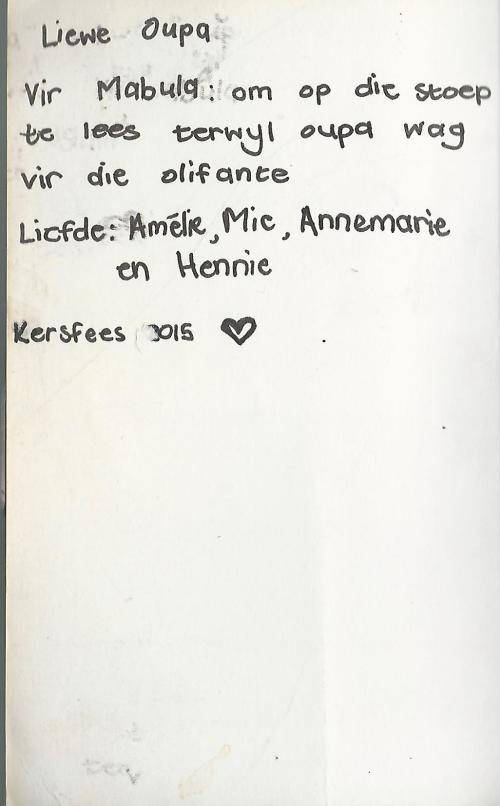 Liewe Oupa
Vir Mabula: om op die stoep
te lees terwyl oupa wag
vir die olifante
Liefde: Amélie, Mie, Annemarie
en Hennie
Kersfees 2015